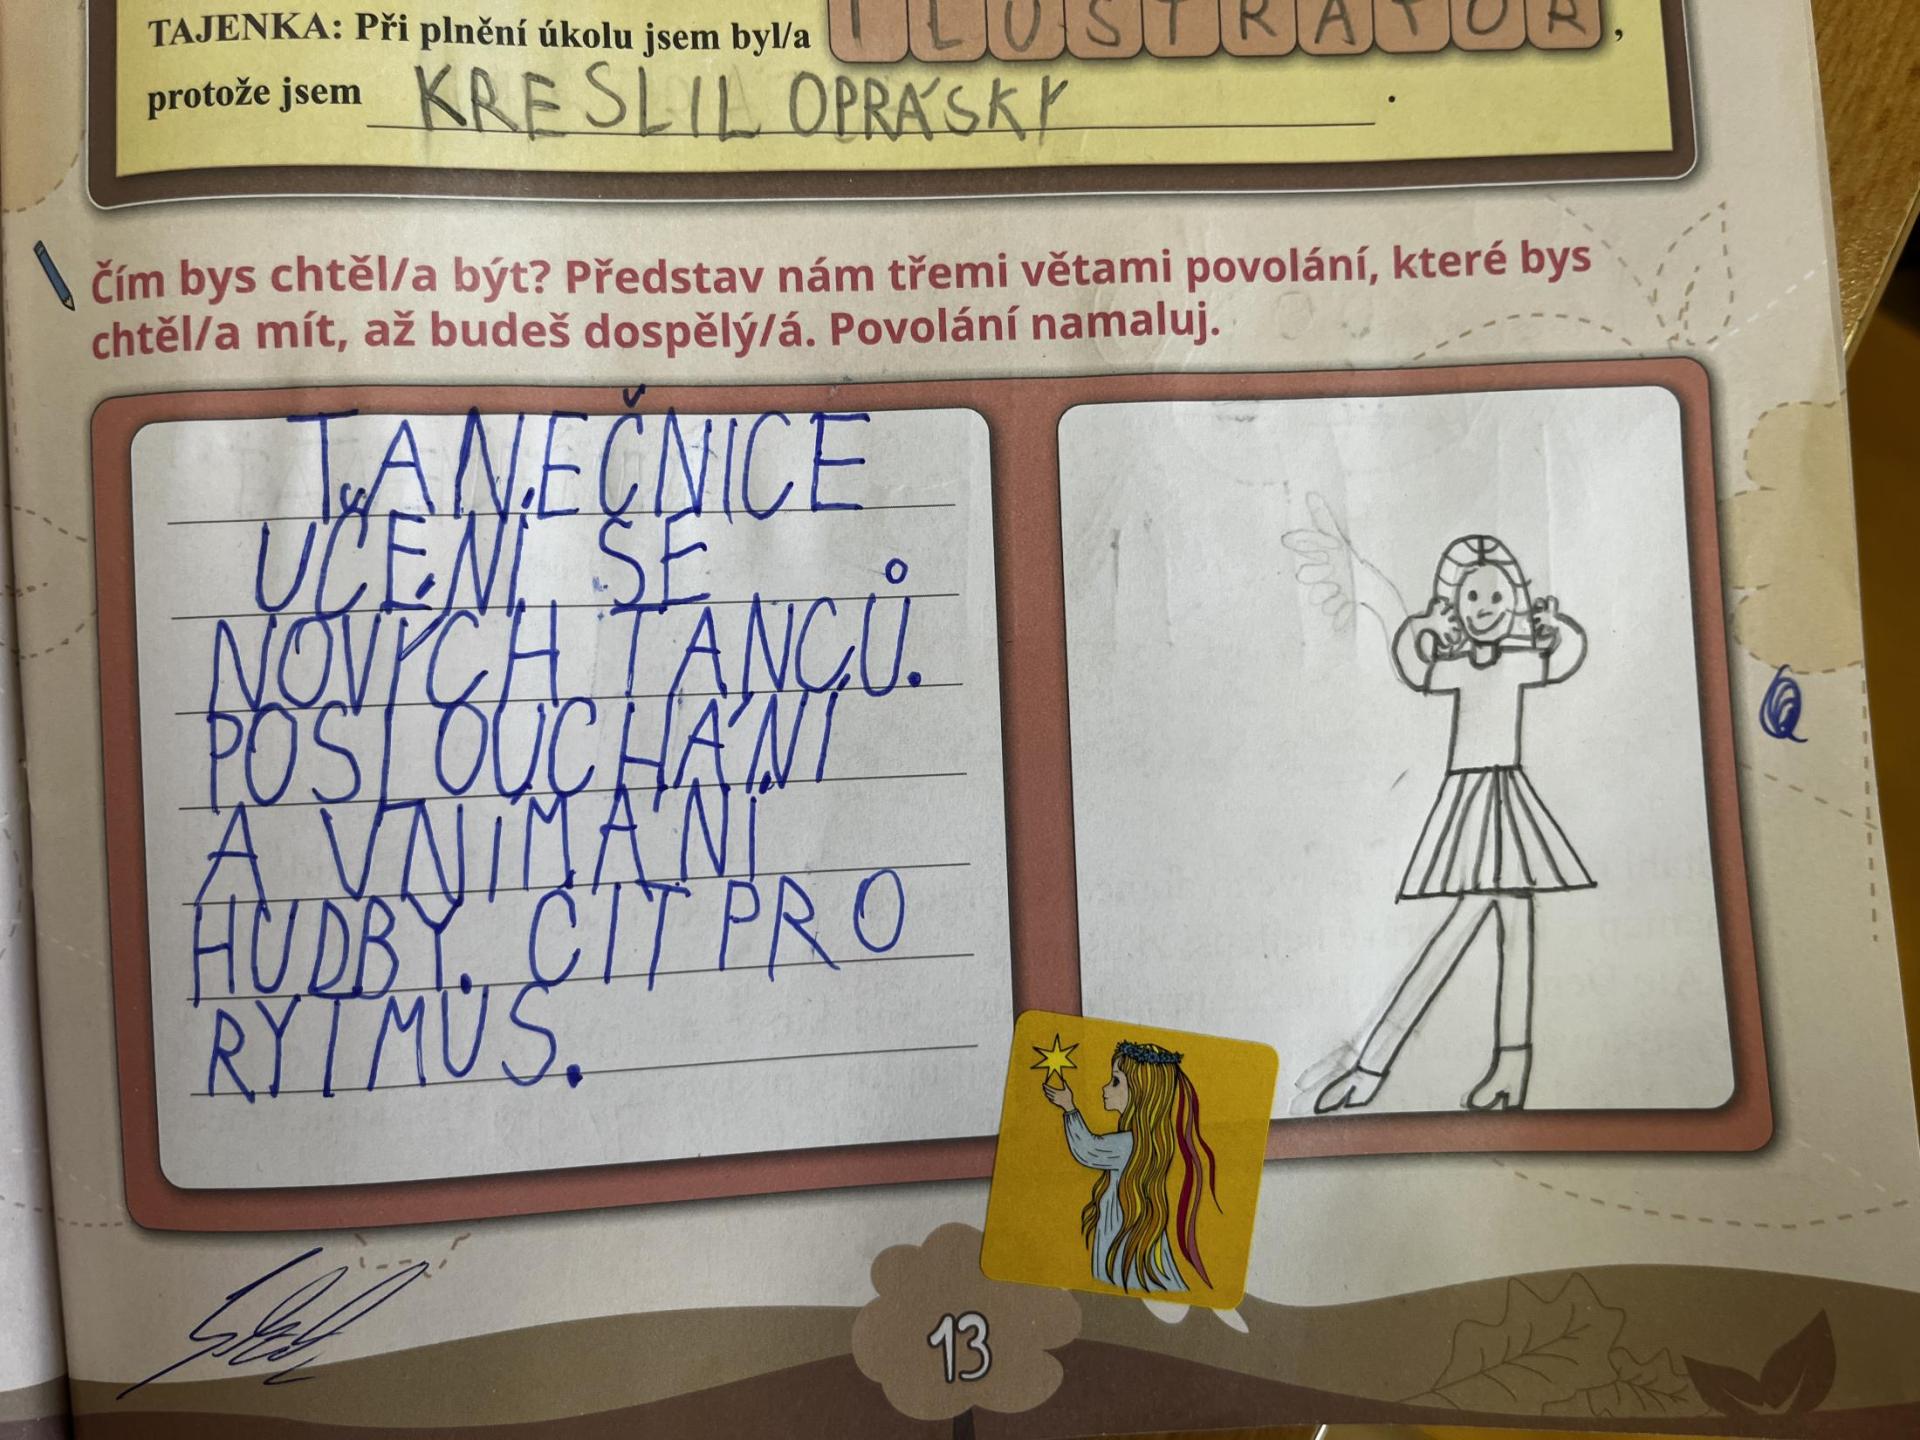 TAJENKA: Při plnění úkolu jsem byl/a ILUSTRÁTOR,
protože jsem KRESLIL OPRÁSKY.
Čím bys chtěl/a být? Představ nám třemi větami povolání, které bys
chtěl/a mít, až budeš dospělý/á. Povolání namaluj.
TANEČNICE
UČENÍ SE
NOVÝCH TANCŮ.
POSLOUCHÁNÍ
A VNÍMÁNÍ
HUDBY. CIT PRO
RYTMUS.
13